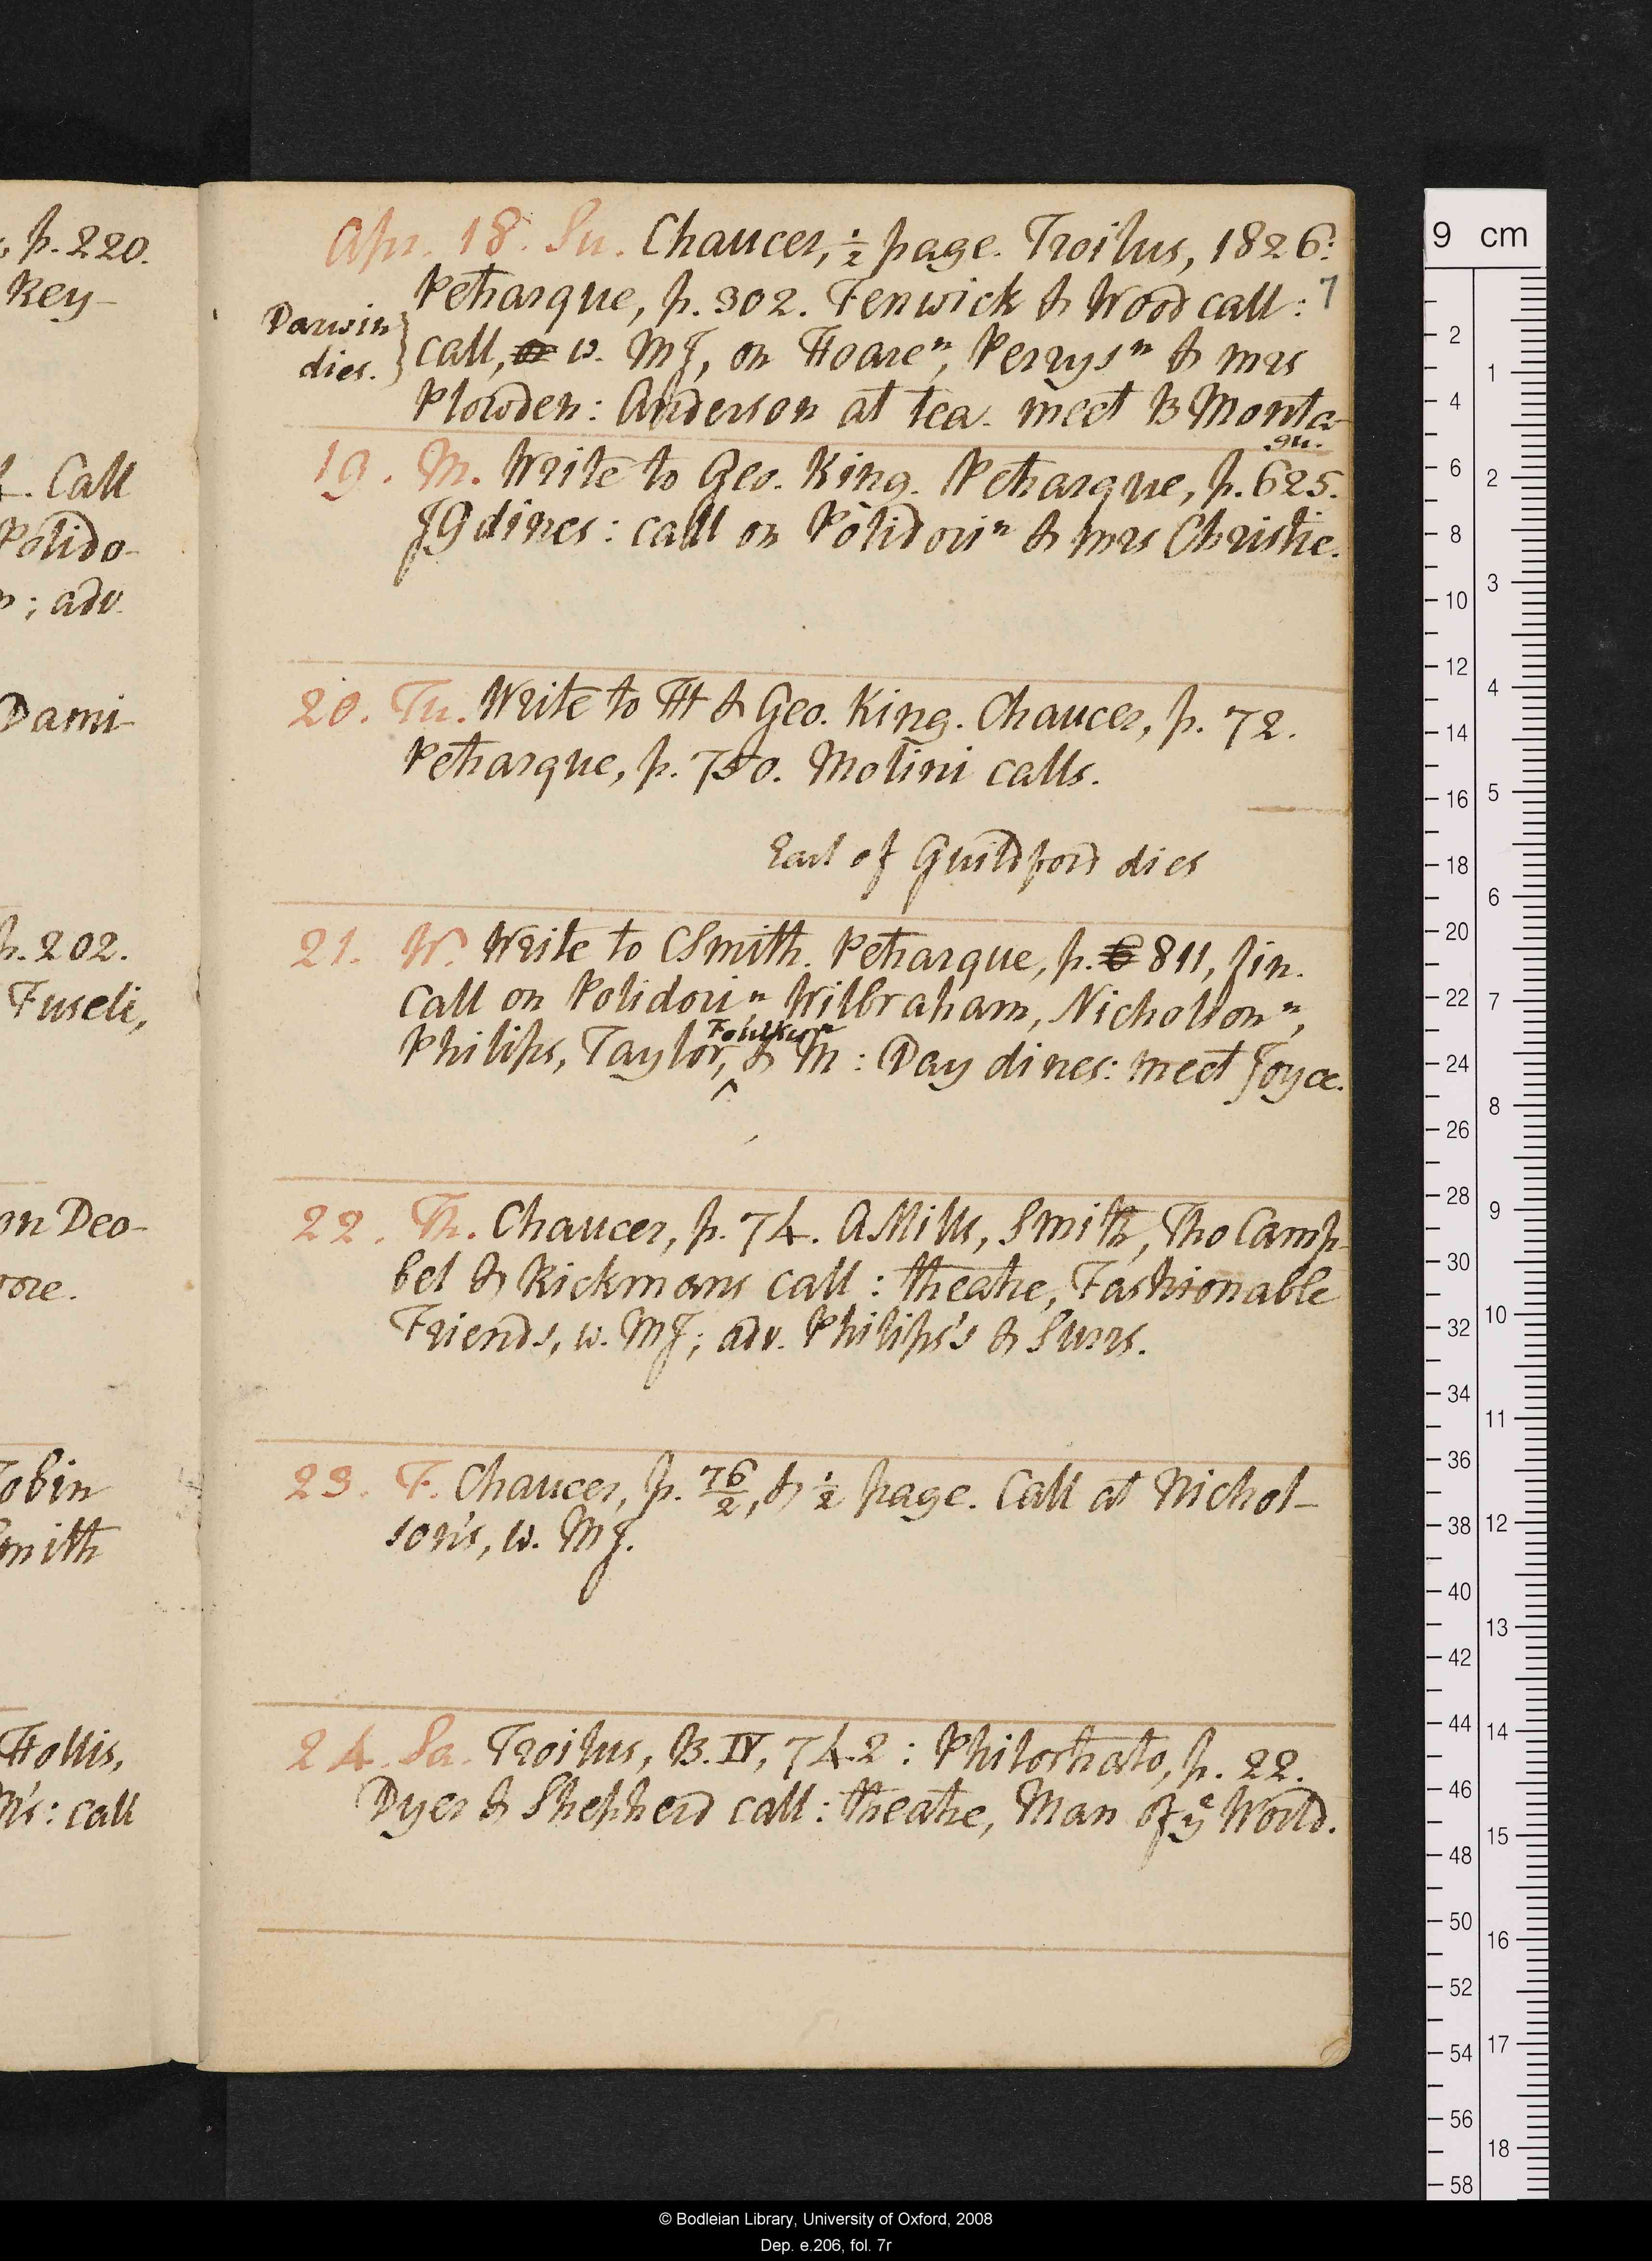 , p. 220.
Key-
4. Call
Polido-
n; adv.
Dami-
p. 202.
Fuseli,
on Deo-
ore.
Tobin
Smith
Hollis,
M's: call
Apr. 18. Su. Chaucer, ½ page. Troilus, 1826:
7
Petrarque, p. 302. Fenwick & Wood call:
Darwin
dies.
call, w. MJ, on Hoare ⁿ, Perrys ⁿ & mrs
Plowden: Anderson at tea. meet B Monta-
gu.
19. M. Write to Geo. King. Petrarque, p. 625.
JG dines: call on Polidori ⁿ & mrs Christie.
20. Tu. Write to TH & Geo. King. Chaucer, p. 72.
Petrarque, p. 750. Molini calls.
Earl of Guildford dies
21. W. Write to CSmith. Petrarque, p. 811, fin.
Call on Polidori ⁿ, Wilbraham, Nicholson ⁿ,
Foulkes ⁿ
Philips, Taylor, ^ & M: Day dines: meet Joyce.
22. Th. Chaucer, p. 74. AMills, Smith, Tho Camp-
bel & Rickmans call: theatre, Fashionable
Friends, w. MJ; adv. Philips's & Surrs.
23. F. Chaucer, p. 76/2, & ½ page. Call at Nichol-
son's, w. MJ.
24. Sa. Troilus, B. IV, 742: Philostrato, p. 22.
Dyer & Shepherd call: theatre, Man of yᵉ World.
9 cm
2
4
6
8
10
12
14
16
18
20
22
24
26
28
30
32
34
36
38
40
42
44
46
48
50
52
54
56
58
1
2
3
4
5
6
7
8
9
10
11
12
13
14
15
16
17
18
© Bodleian Library, University of Oxford, 2008
Dep. e.206, fol. 7r